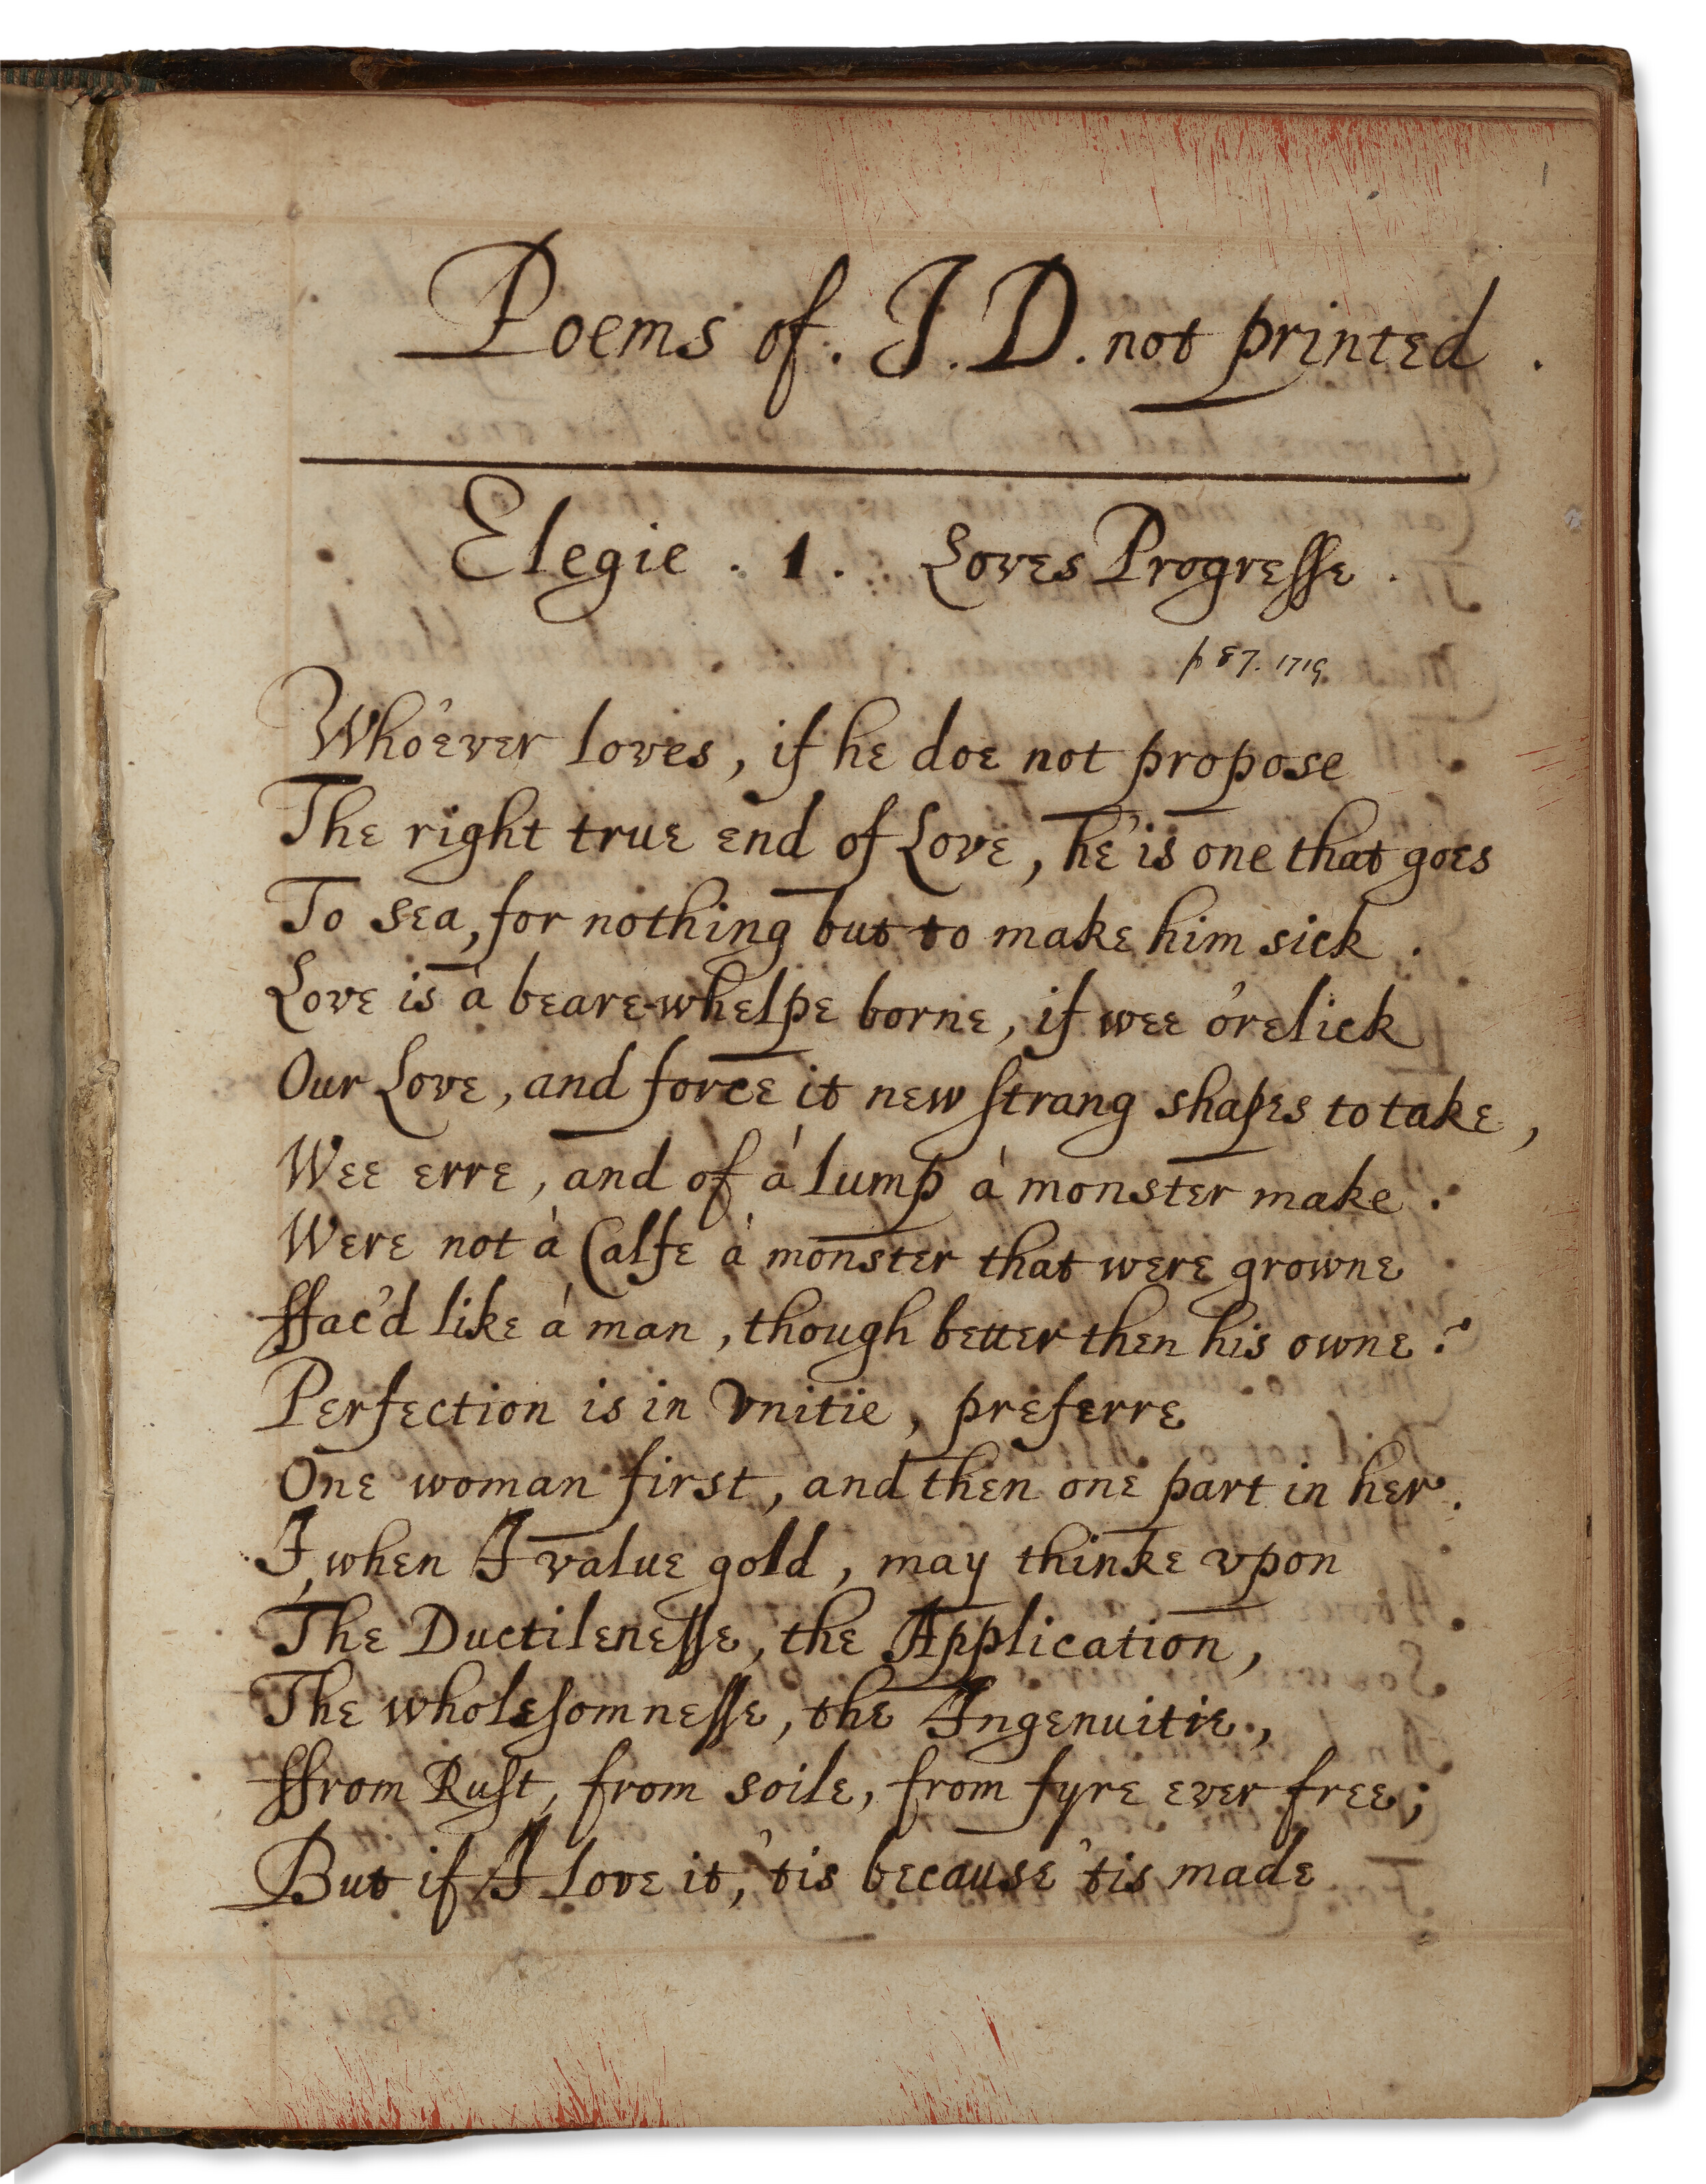 1
Poems of. J. D. not printed.
Elegie. 1. Loves Progresse.
p 87. 1719
Who'ever loves, if he doe not propose
The right true end of Love, he'is one that goes
To sea, for nothing but to make him sick.
Love is à beare-whelpe borne, if wee o'relick
Our Love, and force it new strang shapes to take,
Wee erre, and of à lump à monster make.
Were not à Calfe à monster that were growne
ffac'd like à man, though better then his owne?
Perfection is in Vnitie, preferre
One woman first, and then one part in her.
I, when I value gold, may thinke vpon
The Ductilenesse, the Application,
The wholesomnesse, the Ingenuitie,
ffrom Rust, from soile, from fyre ever free;
But if I love it, 'tis because 'tis made